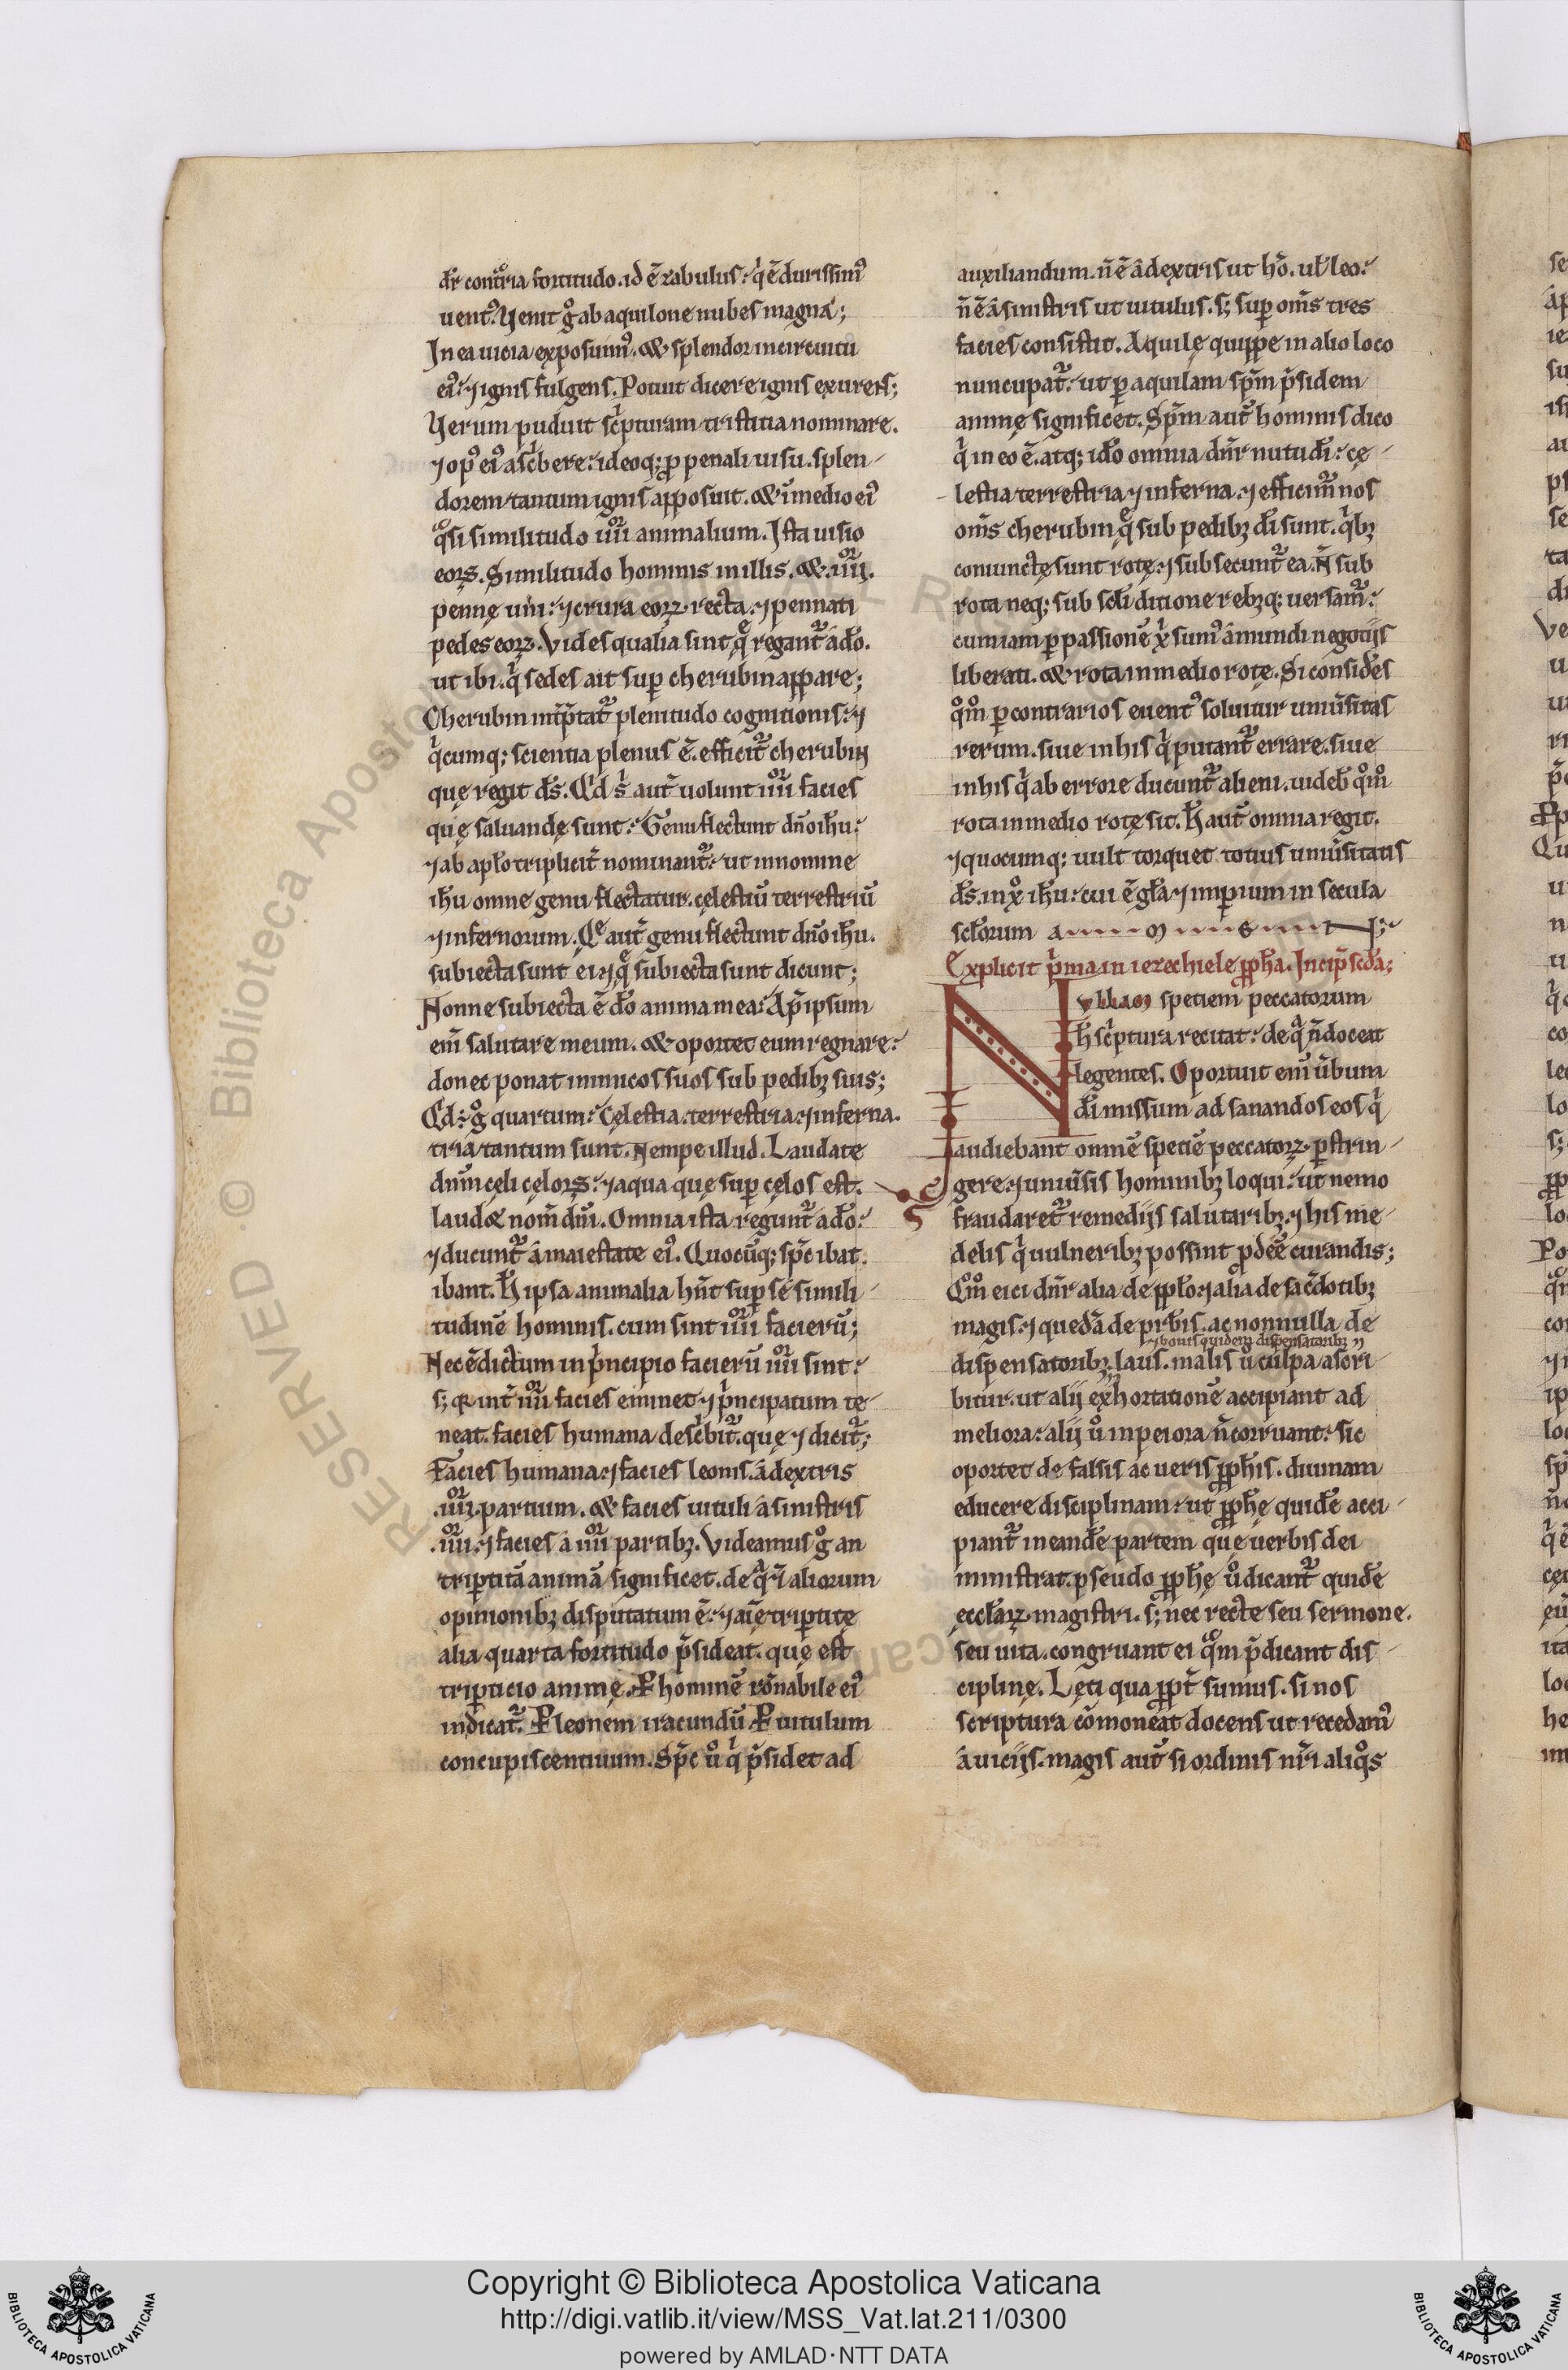 dr̄ cont̊ria fortitudo. id ē zabulus. q̇ ē durissim᾽
uent᾽. Venit g̊ ab aquilone nubes magna;
In ea uicia exposuim᾽. & splendor in circuitu
ei᾽. ⁊ ignis fulgens. Potuit dicere ignis exurens;
Verum puduit sc̍pturam tristitia nominare.
⁊ op᾽ ei᾽ asc̍bere. ideoq; ꝓ penali uisu. splen-
dorem tantum ignis apposuit. & ī medio ei᾽
q̊si similitudo iiii animalium. Ista uisio
eorꝫ. Similitudo hominis in illis. & iiii.
pennę uni. ⁊ crura eorꝝ recta. ⁊ pennati
pedes eorꝝ. Vides qualia sint q̨ regant᷑ a dō.
ut ibi. q̇ sedes ait suꝑ cherubin appare;
Cherubin int̄p̄tat᷑ plenitudo cognitionis. ⁊
q̇cumq; scientia plenus ē. efficit᷑ cherubin
quę regit ds̄. Qd̄ s̄ aut̄ uolunt iiii facies
quę saluandę sunt. Genu flectunt dño ihū.
⁊ ab apło triplicit̄ nominant᷑. ut in nomine
ihū omne genu flectatur. cęlestiū terrestriū
⁊ infernorum. Q̨ aut̄ genu flectunt dño ihū.
subiecta sunt ei. ⁊ q̨ subiecta sunt dicunt;
Nonne subiecta ē dō anima mea. Ap̄ ipsum
em̄ salutare meum. & oportet eum regnare.
donec ponat inimicos suos sub pedibꝫ suis;
Qd̄ ÷ g̊ quartum. Cęlestia. terrestria. ⁊ inferna.
tria tantum sunt. Nempe illud. Laudate
dnm̄ cęli cęlorꝫ. ⁊ aqua quę suꝑ cęlos est.
laud& nom̄ dnī. Omnia ista regunt᷑ a dō.
⁊ ducunt᷑ a maiestate ei᾽. Quocūq; sp̄c ibat.
ibant. H̄ ipsa animalia hn̄t suꝑ se simili-
tudinē hominis. cum sint iiii facierū;
Nec ē dictum in p̍ncipio facierū iiii sint.
s; qr̄ int̄ iiii facies eminet ⁊ p̍ncipatum te-
neat. facies humana desc̍bit᷑. quę ⁊ dicit᷑;
Facies humana. ⁊ facies leonis. a dextris
.iiii. partium. & facies uituli a sinistris
.iiii. ⁊ facies a iiii partibꝫ. Videamus g̊ an
tripertitā animā significet. de q̇ ⁊ ī aliorum
opinionibꝫ disputatum ē. ⁊ aīę tripertitę
alia quarta fortitudo p̄sideat. quę est
triꝑticio animę. Ꝑ hominē rōnabile ei᾽
indicat᷑. Ꝑ leonem iracundū. Ꝑ uitulum
concupiscentiuum. Sp̄c ů q̇ p̄sidet ad
auxiliandum. n̄ ē a dextris ut hō. uł leo.
n̄ ē a sinistris ut uitulus. s; suꝑ om̄s tres
facies consistit. Aquilę quippe in alio loco
nuncupat᷑. ut ꝑ aquilam sp̄m p̄sidem
animę significet. Sp̄m aut̄ hominis dico
q̇ in eo ē. atq; idō omnia dn̄r nutu dī. cę-
lestia terrestria ⁊ inferna. ⁊ efficim᷑ nos
om̄s cherubin q̨ sub pedibꝫ dī sunt. q̇bꝫ
coniunctę sunt rotę. ⁊ subsecunt᷑ ea. N̄ sub
rota neq; sub sc̄li ditione rebꝫq; uersam᷑.
cum iam ꝑ passionē xp̄i sum᾽ a mundi negotijs
liberati. & rota in medio rotę. Si considēs
q̊m̊ ꝑ contrarios euent᾽ soluitur uniūsitas
rerum. siue in his q̇ putant᷑ errare. siue
in his q̇ ab errore ducunt᷑ alieni. uideb̄ q̊m̊
rota in medio rotę sit. H̄ aut̄ omnia regit.
⁊ quocumq; uult torquet totius uniūsitatis
ds̄. in xp̊ ihū. cui ē gła ⁊ imperium in secula
scłorum amen;
Explicit p̍ma in iezechiele ꝓph̄a. Incip̄ scd̄a;
Nullam speciem peccatorum
h̄ sc̍ptura recitat. de q̇ n̄ doceat
legentes. Oportuit em̄ ūbum
dī missum ad sanandos eos q̇
audiebant omnē speciē peccatorꝝ ꝑstrin-
gere. ⁊ uniūsis hominibꝫ loqui. ut nemo
fraudaret᷑ remedijs salutaribꝫ. ⁊ his me-
delis q̇ uulneribꝫ possint ꝓdeē curandis;
Q̊m̊ eici dn̄r alia de pꝑło. ⁊ alia de sac̄dotibꝫ
magis. ⁊ quedā de p̄rbis. ac nonnulla de
⁊ bonis quidem dispensatoribꝫ
dispensatoribꝫ. laus. malis ů culpa ascri-
bitur. ut alij exhortationē accipiant ad
meliora. alij ů in peiora n̄ corruant. sic
oportet de falsis ac ueris ꝓph̄is. diuinam
educere disciplinam. ut ꝓph̄ę quidē acci-
piant᷑ in eandē partem quę uerbis dei
ministrat. pseudo ꝓph̄ę ů dicant᷑ quidē
ęccłarꝝ magistri. s; nec recte seu sermone.
seu uita. congruant ei q̊m p̄dicant dis-
ciplinę. Lęti qua ꝓpt̄ sumus. si nos
scriptura cōmoneat docens ut recedam᾽
a uicijs. magis aut̄ si ordinis nr̄i aliq̊s
Copyright © Biblioteca Apostolica Vaticana
http://digi.vatlib.it/view/MSS_Vat.lat.211/0300
powered by AMLAD·NTT DATA